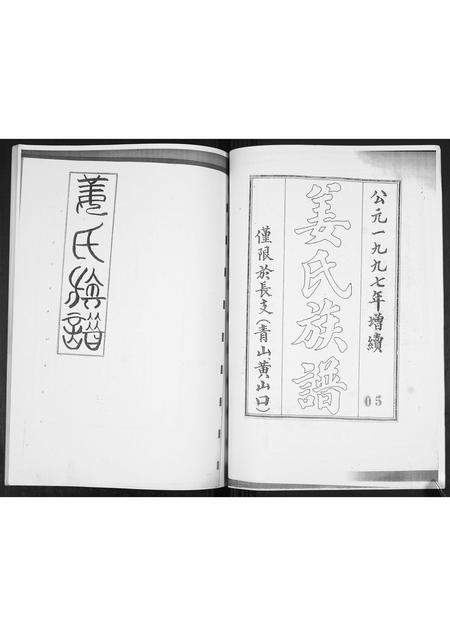 公元一九九七年增續
05
姜氏族譜
僅限於長支(青山、黃山口)
姜氏族譜